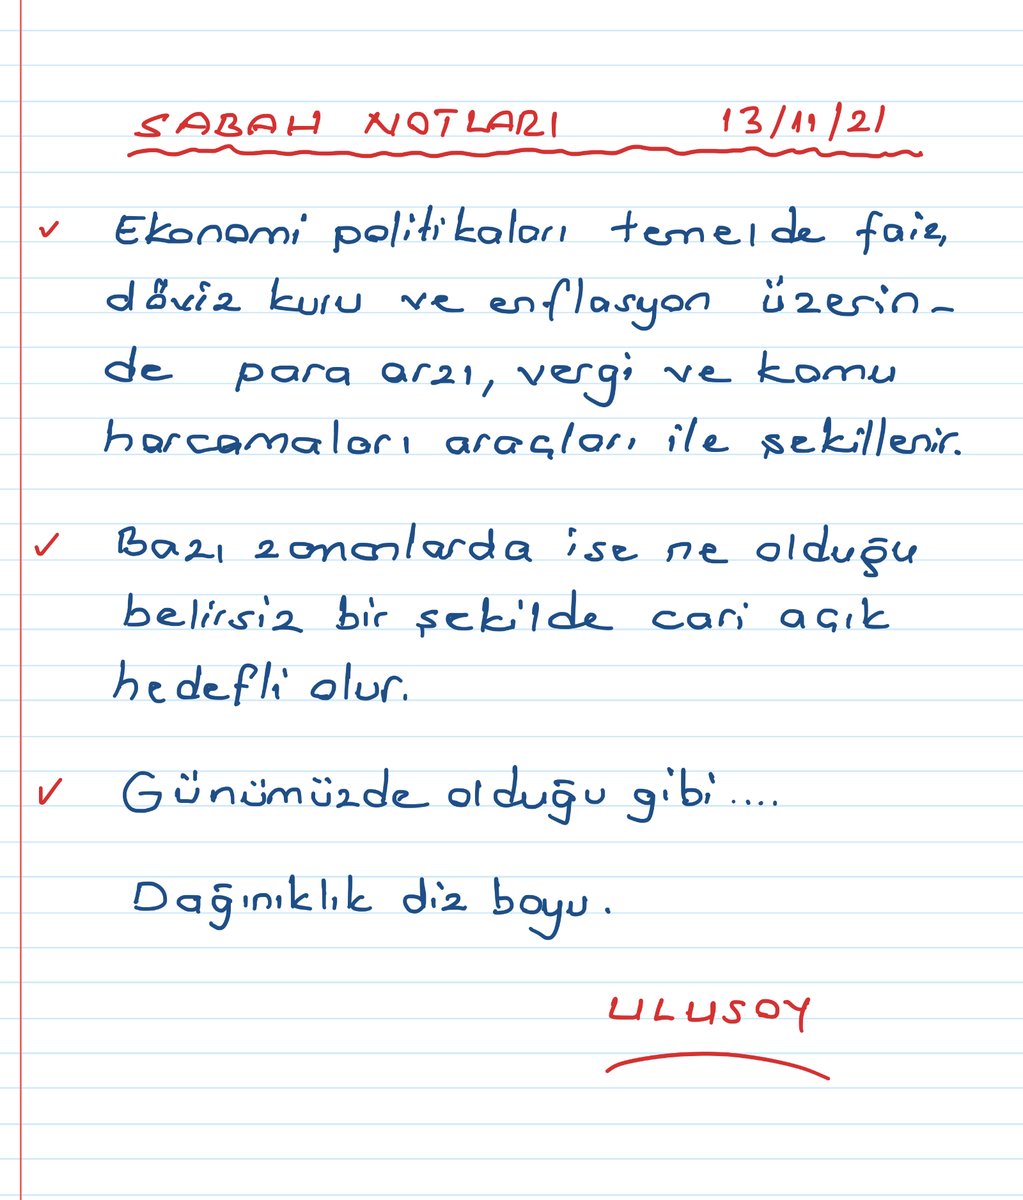 SABAH NOTLARI 13/11/21
Ekonomi politikaları temelde faiz,
döviz kuru ve enflasyon üzerin-
de para arzı, vergi ve kamu
harcamaları araçları ile şekillenir.
Bazı zamanlarda ise ne olduğu
belirsiz bir şekilde cari açık
hedefli olur.
Günümüzde olduğu gibi....
Dağınıklık diz boyu.
ULUSOY